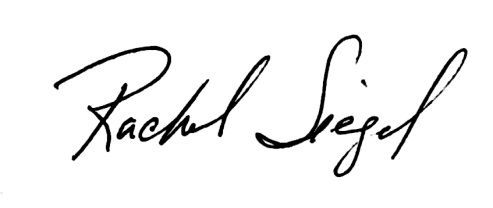 Rachel Siegel